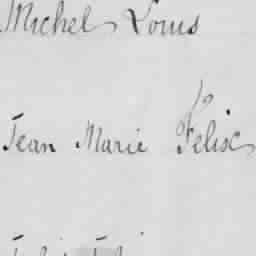 Michel Louis
Jean Marie Felix